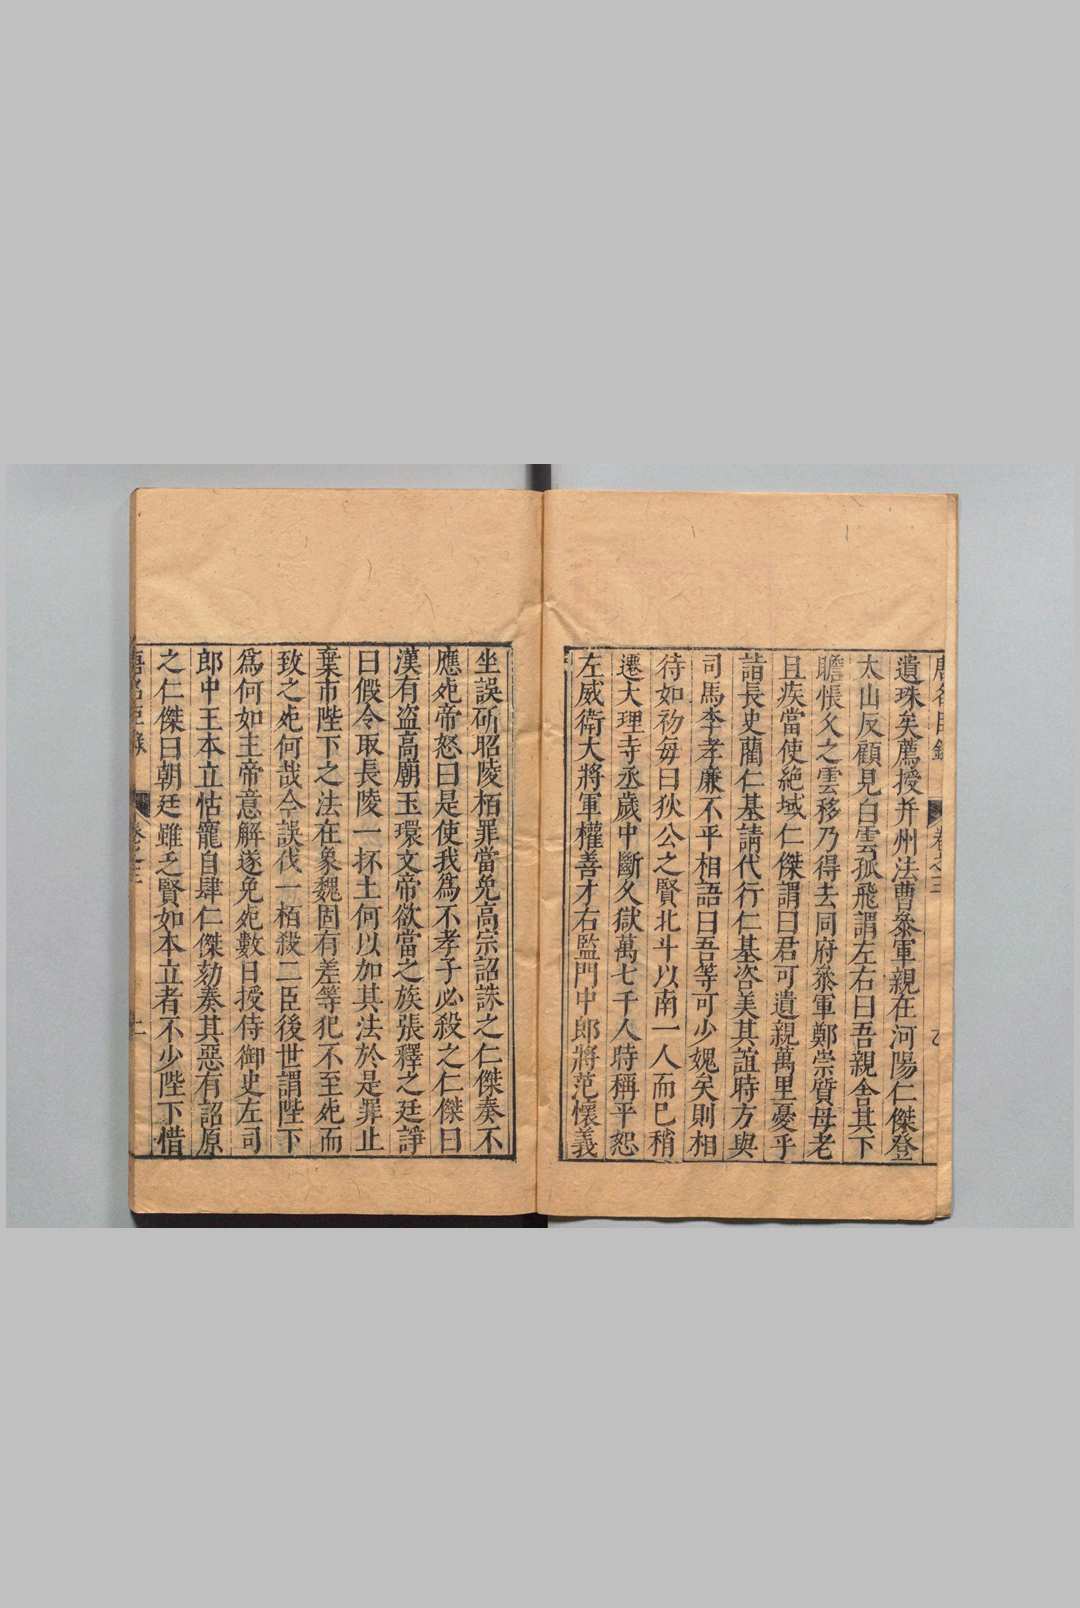 遺珠矣薦授并州法曹叅軍親在河陽仁傑登
太山反顧見白雲孤飛謂左右曰吾親舍其下
瞻悵久之雲移乃得去同府叅軍鄭崇質母老
且疾當使絶域仁傑謂曰君可遺親萬里憂乎
詣長史藺仁基請代行仁基咨美其誼時方與
司馬李孝廉不平相語曰吾等可少媿矣則相
待如初毎曰狄公之賢北斗以南一人而已稍
遷大理寺丞歲中斷久獄萬七千人時稱平恕
左威衛大將軍權善才右監門中郎將范懷義
坐誤斫昭陵栢罪當免高宗詔誅之仁傑奏不
應死帝怒曰是使我爲不孝子必殺之仁傑曰
漢有盗高廟玉環文帝欲當之族張釋之廷諍
曰假令取長陵一抔土何以加其法於是罪止
棄市陛下之法在象魏固有差等犯不至死而
致之死何哉今誤伐一栢殺二臣後世謂陛下
爲何如主帝意解遂免死數日授侍御史左司
郎中王本立怙寵自肆仁傑劾奏其惡有詔原
之仁傑曰朝廷雖乏賢如本立者不少陛下惜
唐名臣錄 卷之三